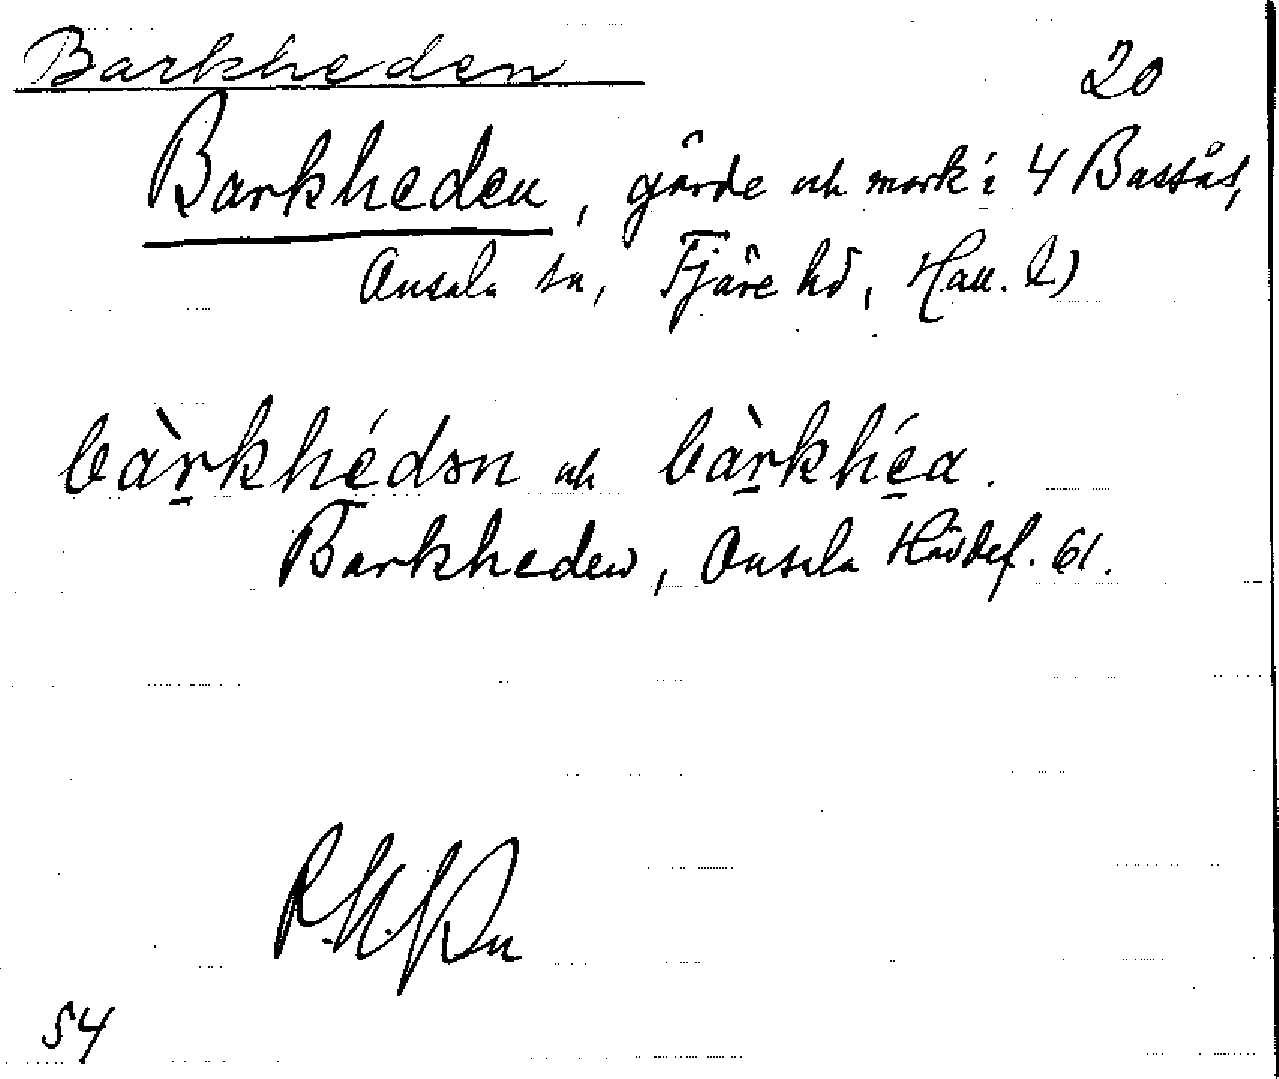 Barkheden 20
Barkheden, gärde och mark i 4 Bassås,
Onsala sn, Fjäre hd, Hall. l)
bàrkhédən och bàrkhéa.
Barkheden, Onsala Hävdef. 61.
54